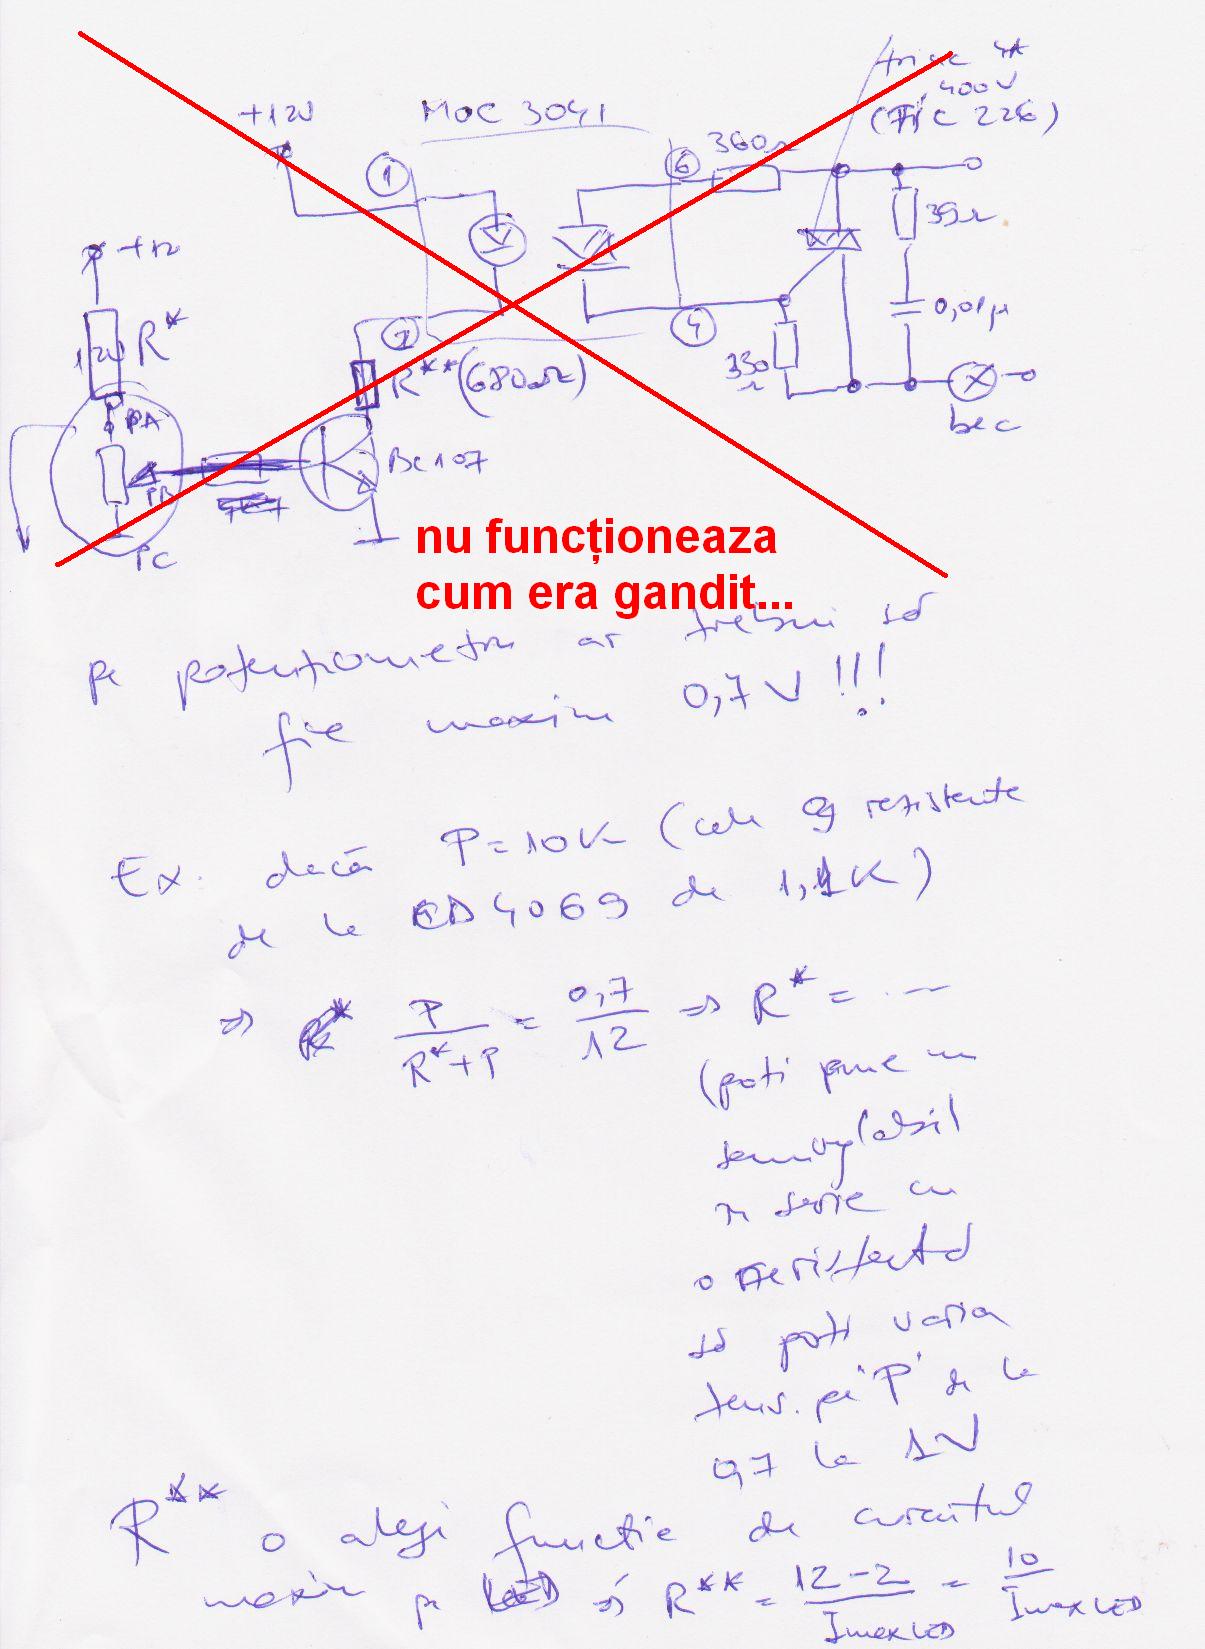 triac 4A
400V
(TIC 226)
+12V
MOC 3041
1
6
360Ω
39Ω
+12
0,01µ
2
4
330
Ω
12V R*
R**(680Ω)
bec
PA
BC107
PB
PC
nu funcționeaza
cum era gandit...
pe potențiometru ar trebui să
fie maxim 0,7V!!!
Ex. dacă P=10K (cele 9 rezistente
de la CD4069 de 1,1K)
=> P/(R*+P) = 0,7/12 => R* = ...
(poti pune un
semireglabil
în serie cu
o rezistentă
să poti varia
tens. pe 'P' de la
0,7 la 1V
R** o alegi functie de curentul
maxim pe LED => R** = (12-2)/Imax LED = 10/Imax LED